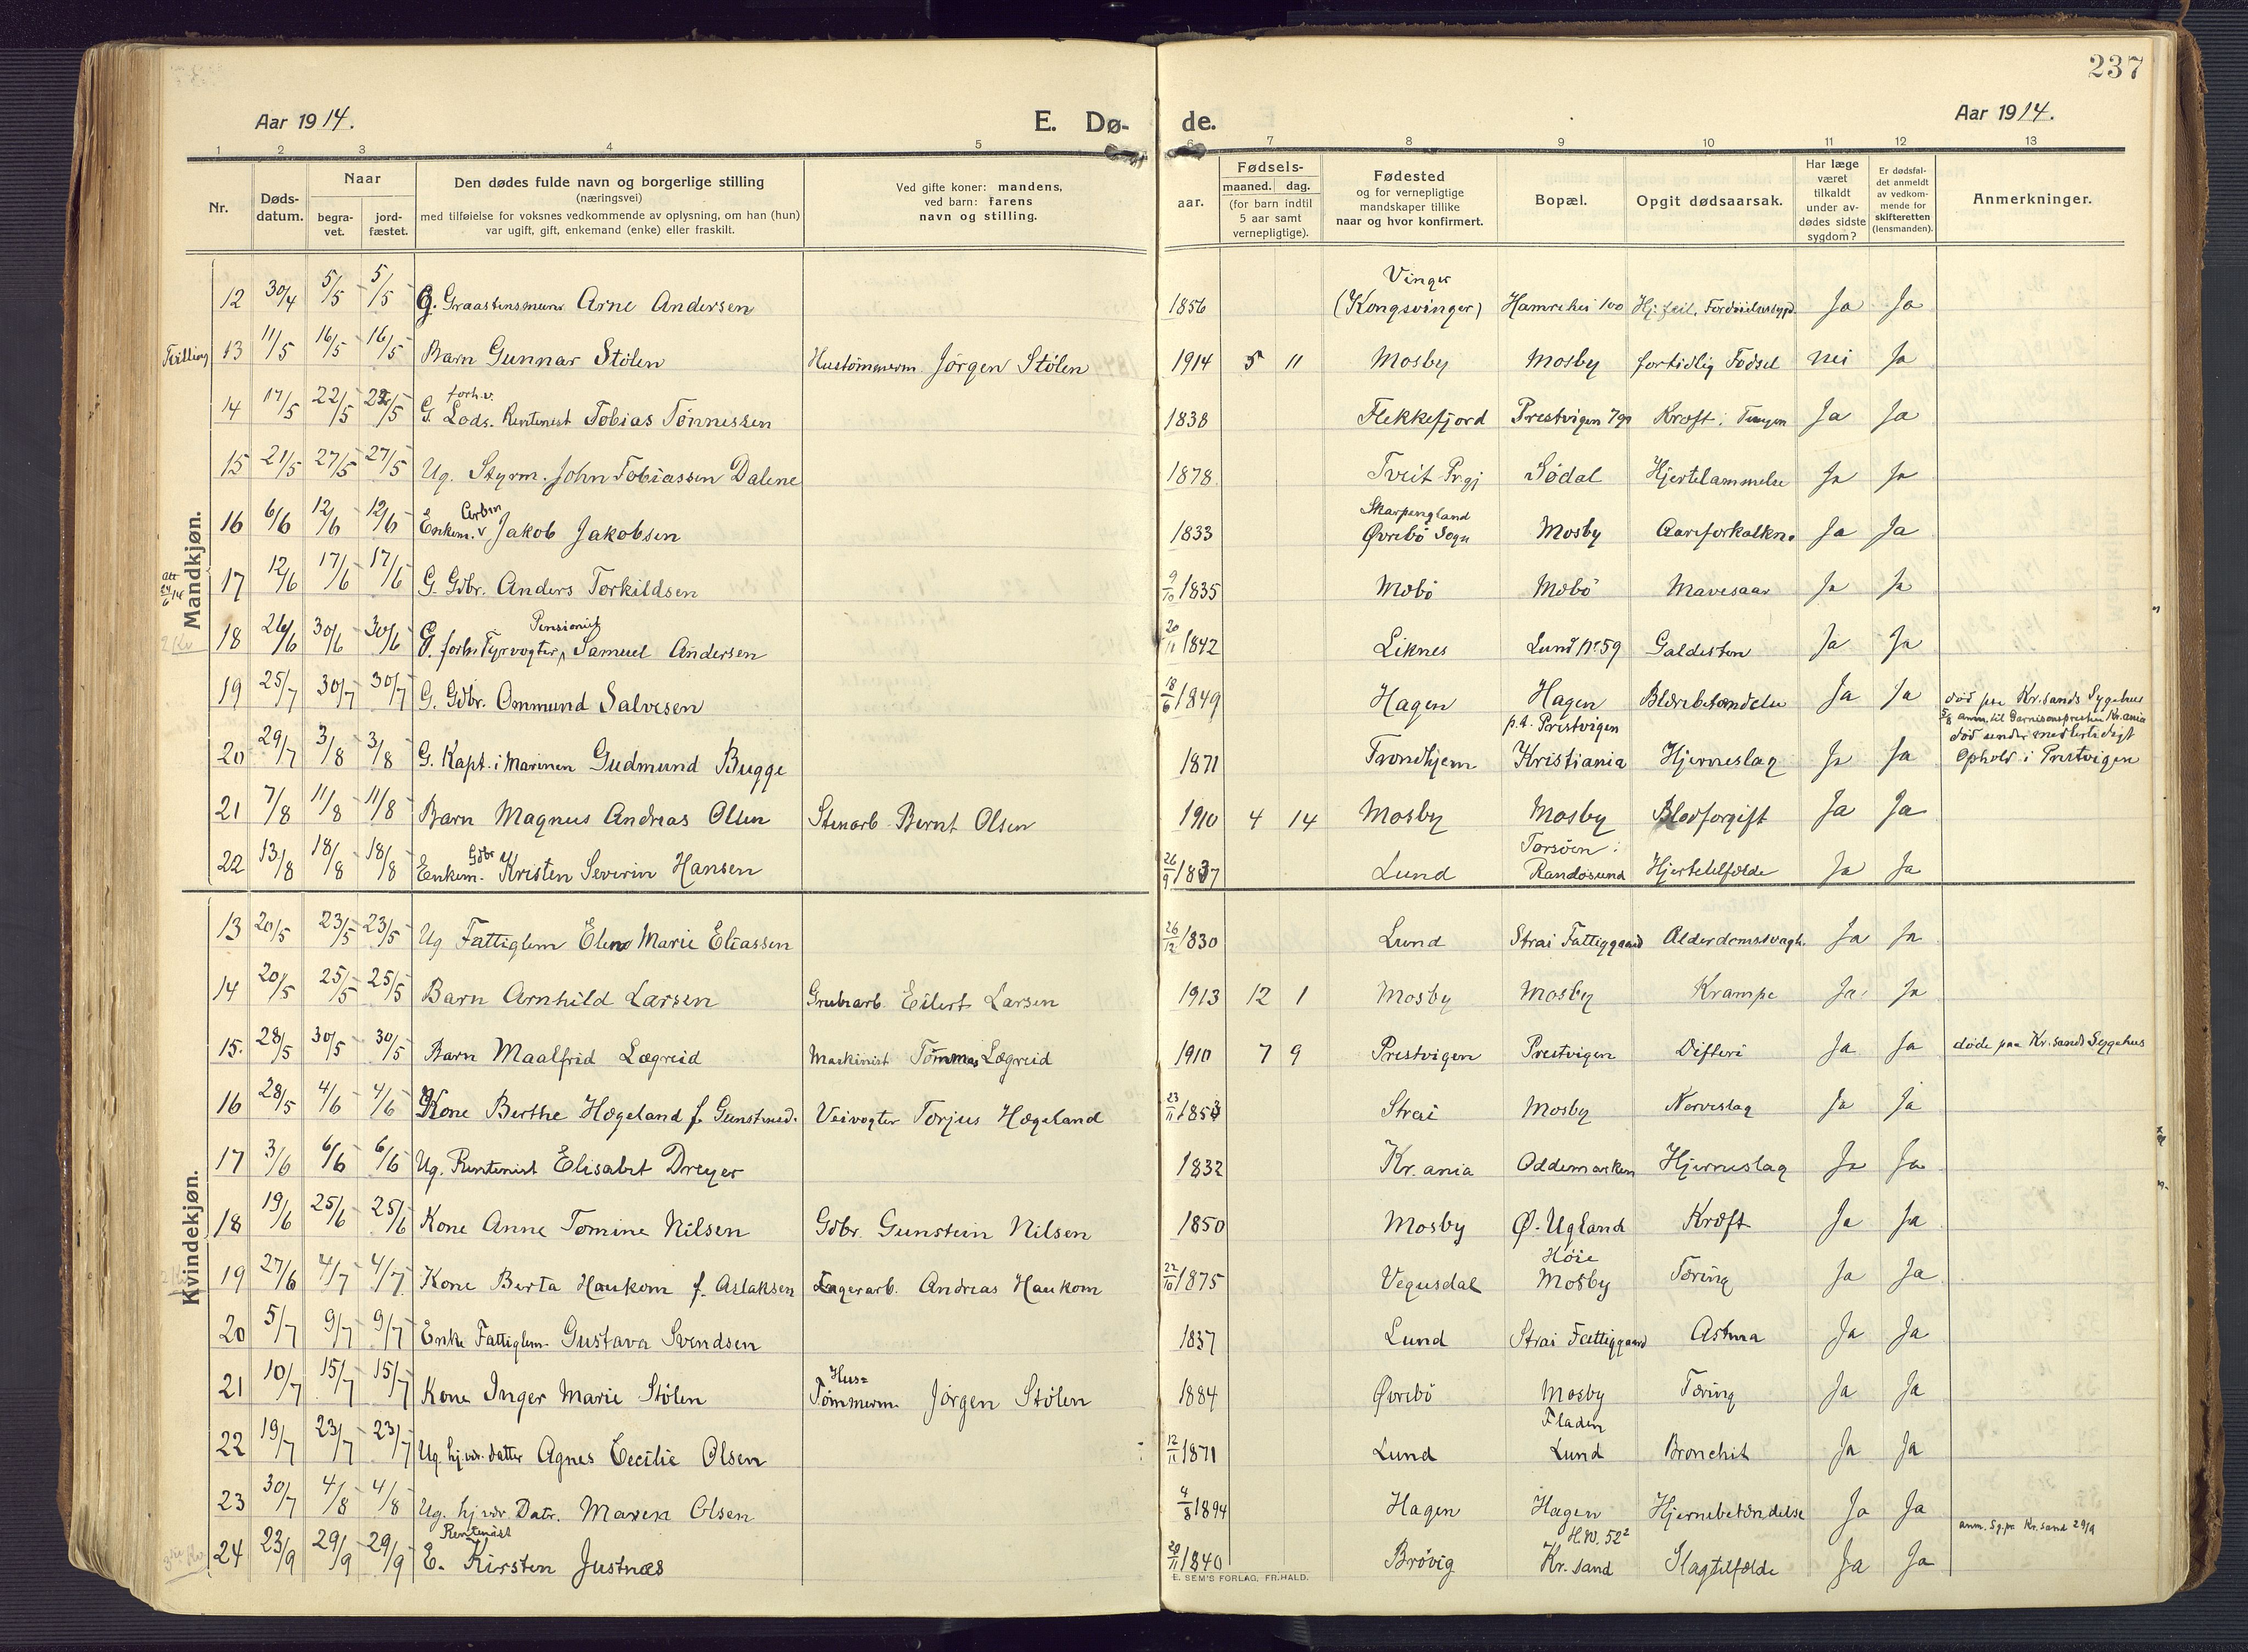 237
Aar 1914.
E. Dø-
de.
Aar 1914.
1 2 3 4 5 6 7 8 9 10 11 12 13
Nr.
Døds-
datum.
Naar
begra-
vet.
jord-
fæstet.
Den dødes fulde navn og borgerlige stilling
(næringsvei)
med tilføielse for voksnes vedkommende av oplysning, om han (hun)
var ugift, gift, enkemand (enke) eller fraskilt.
Ved gifte koner: mandens,
ved barn: farens
navn og stilling.
Fødsels-
aar.
maaned. dag.
(for barn indtil
5 aar samt
vernepligtige).
Fødested
og for vernepligtige
mandskaper tillike
naar og hvor konfirmert.
Bopæl.
Opgit dødsaarsak.
Har læge
været
tilkaldt
under av-
dødes sidste
sygdom?
Er dødsfal-
det anmeldt
av vedkom-
mende for
skifteretten
(lensmanden).
Anmerkninger.
Mandkjøn.
Vinger
12 30/4 5/5 5/5 G. Graastensmurer Arne Andersen 1856 (Kongsvinger) Hamrehei 100 Hj: feil, Ja Ja
Tvilling 13 11/5 16/5 16/5 Barn Gunnar Stølen Hustømmerm Jørgen Stølen 1914 5 11 Mosby Mosby fortidlig Fødsel nei Ja
forh.v.
14 17/5 22/5 22/5 G. Lods. Rentenist Tobias Tønnessen 1838 Flekkefjord Prestvigen Kræft i Ja Ja
15 21/5 27/5 27/5 Ug. Styrm. John Tobiassen Dalene 1878 Tveit Prgj Sødal Hjertelammelse Ja Ja
Skarpengland
16 6/6 12/6 12/6 Enkem. Jakob Jakobsen 1833 Øvrebø Sogn Mosby Aareforkalkn. Ja Ja
17 12/6 17/6 17/6 G. Gdbr. Anders Torkildsen 9/10 1835 Mæbø Mæbø Mavesaar Ja Ja
Pensionist
18 26/6 30/6 30/6 G. forh. Fyrvogter, Samuel Andersen 20/11 1842 Liknes Lund No 59 Galdesten Ja Ja
19 25/7 30/7 30/7 G. Gdbr. Ommund Salvesen 18/6 1849 Hagen Hagen Blærebetændelse Ja Ja død paa Kr.sands Sygehus
p.t. Prestvigen
5/8 anm. til Garnisonspresten Kr.ania
død under midlertidigt
20 29/7 3/8 3/8 G. Kapt. i Marinen Gudmund Bugge 1871 Trondhjem Kristiania Hjerneslag Ja Ja Ophold i Prestvigen
21 7/8 11/8 11/8 Barn Magnus Andreas Olsen Stenarb Bernt Olsen 1910 4 14 Mosby Mosby Blodforgift Ja Ja
Gdbr Torsøen i
22 13/8 18/8 18/8 Enkem. Kristen Severin Hansen 26/9 1837 Lund Randøsund Hjertetilfælde Ja Ja
Kvindekjøn.
13 20/5 23/5 23/5 Ug Fattiglem Elen Marie Eliassen 26/12 1830 Lund Strai Fattiggaard Alderdomssvagh. Ja Ja
14 20/5 25/5 25/5 Barn Arnhild Larsen Grubarb. Eilert Larsen 1913 12 1 Mosby Mosby Krampe Ja Ja
15. 28/5 30/5 30/5 Barn Maalfrid Lægreid Maskinist Tommas Lægreid 1910 7 9 Prestvigen Prestvigen Difteri Ja Ja døde paa Kr.sands Sygehus
16 28/5 4/6 4/6 Kone Berthe Hægeland f. Gunstensd. Veivogter Torjus Hægeland 23/11 1853 Strai Mosby Nerveslag Ja Ja
17 3/6 6/6 6/6 Ug. Rentenist Elisabet Dreyer 1832 Kr.ania Oddemarken Hjerneslag Ja Ja
18 19/6 25/6 25/6 Kone Anne Tomine Nilsen Gdbr. Gunstein Nilsen 1850 Mosby Ø. Ugland Kræft Ja Ja
Høie
19 27/6 4/7 4/7 Kone Berta Haukom f. Aslaksen Lagerarb. Andreas Haukom 22/10 1875 Vegusdal Mosby Tæring Ja Ja
20 5/7 9/7 9/7 Enke Fattiglem Gustava Svendsen 1837 Lund Strai Fattiggaard Astma Ja Ja
Hus=
21 10/7 15/7 15/7 Kone Inger Marie Stølen Tømmerm. Jørgen Stølen 1884 Øvrebø Mosby Tæring Ja Ja
Fladen
22 19/7 23/7 23/7 Ug. hj.vær. datter Agnes Cecilie Olsen 12/11 1871 Lund Lund Bronchit Ja Ja
23 30/7 4/8 4/8 Ug. hj vær Datr. Maren Olsen 4/8 1894 Hagen Hagen Hjernebetændelse Ja Ja
Rentenist H.W. 52² anm. Sg.pr Kr.sand 29/9
24 23/9 29/9 29/9 E. Kirsten Justnæs 20/11 1840 Brøvig Kr.sand Slagtilfælde Ja Ja
E. SEM'S FORLAG, FR.HALD.